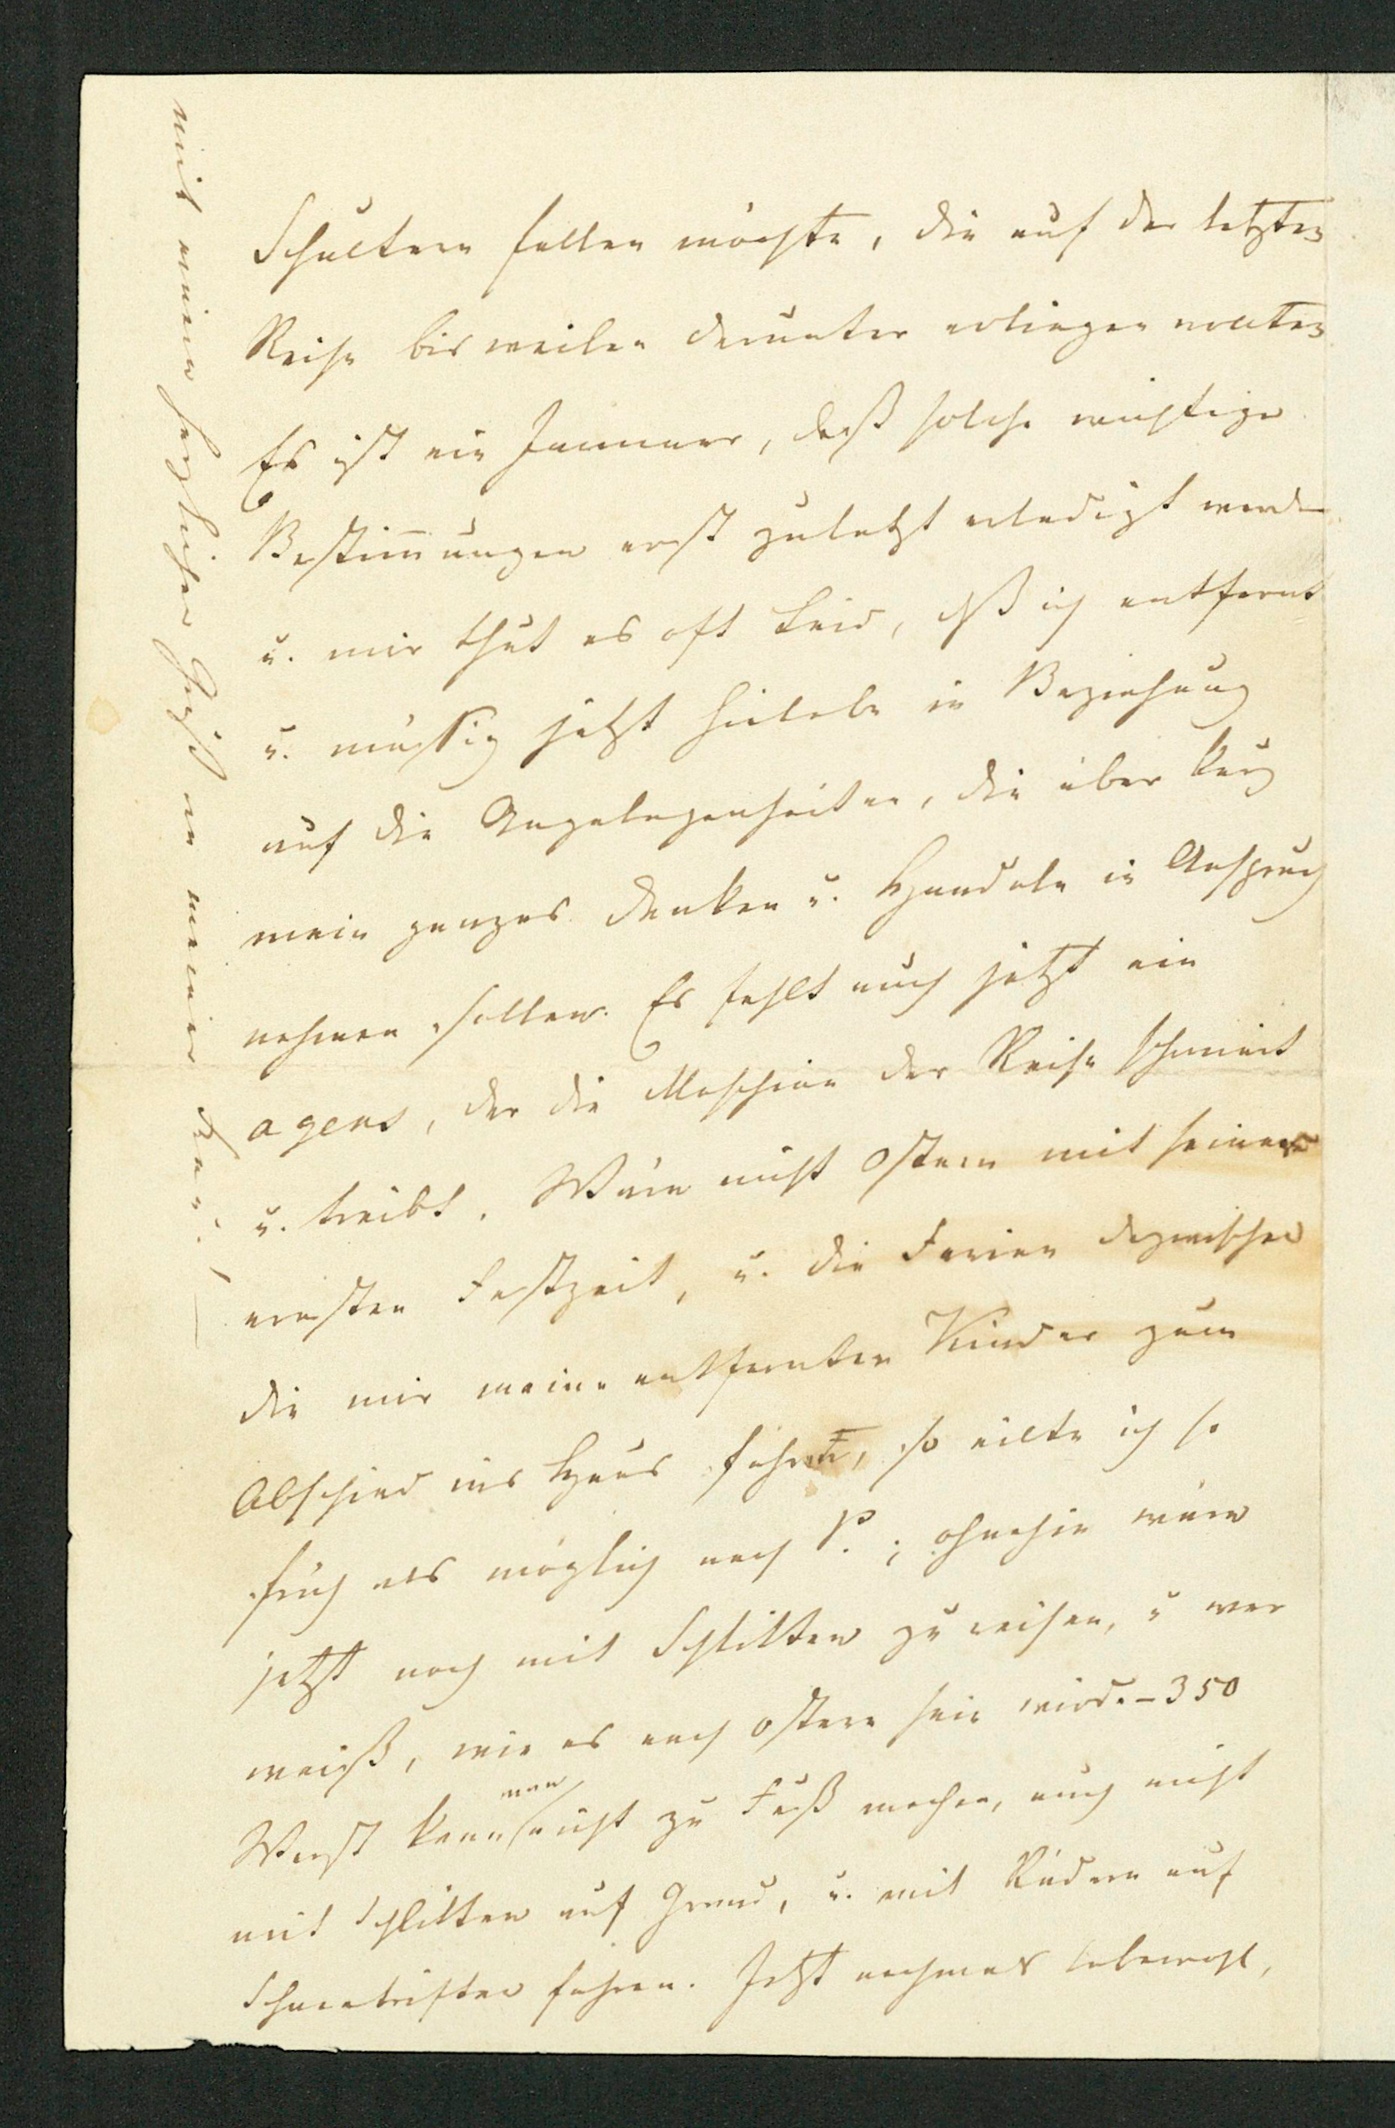 Schultern fallen möchte, die auf der letzten
Reise bisweilen darunter erliegen wollten
Es ist ein Jammer, daß solche wichtige
Bestim̅ungen erst zuletzt erledigt werden
u. mir thut es oft Leid, dß ich entfernt
u. müssig jetzt hinlebe in Beziehung
auf die Angelegenheiten, die über kurz
mein ganzes Denken u. Handeln in Anspruch
nehmen sollen. Es fehlt auch jetzt ein
agens, der die Maschine der Reise schmiert
u. treibt. Wäre nicht Ostern mit seiner
ernsten Festzeit, u. die Ferien dazwischen
die mir meine entfernten Kinder zum
Abschied ins Haus führen, so eilte ich so
früh als möglich nach P.; ohnehin wäre
jetzt noch mit Schlitten zu reisen, u wer
weiß, wie es nach Ostern sein wird. – 350
Werst kann man nicht zu Fuß machen, auch nicht
mit Schlitten auf Grund, u. mit Rädern auf
Schneetriften fahren. Jetzt nochmals lebewohl,
mit einem herzlichen Gruß an meine